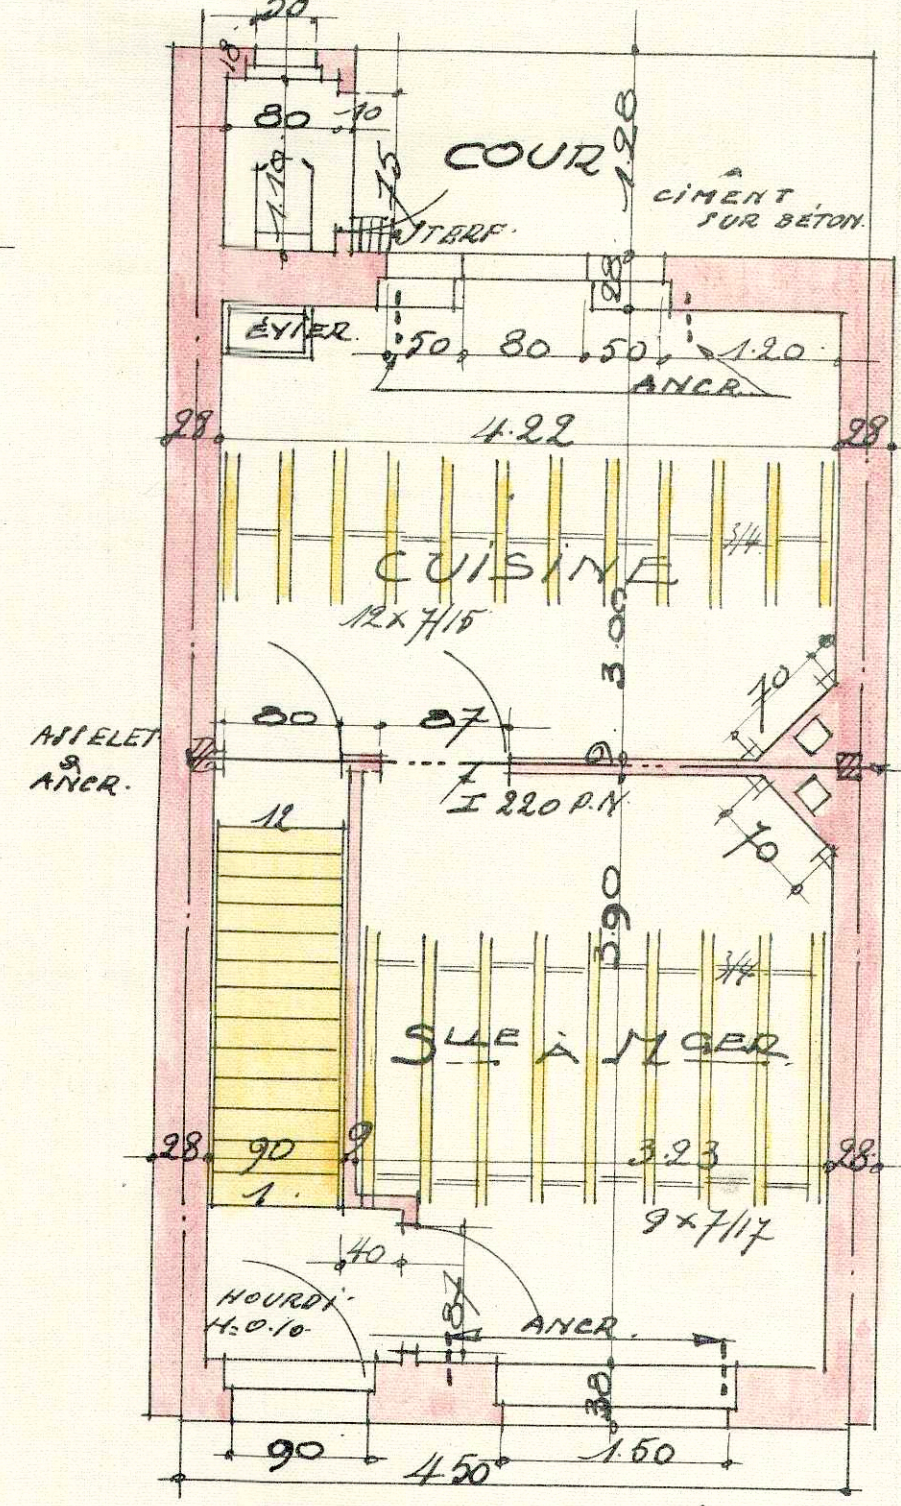 50
18
80
10
1.10
75
COUR
1.28
CIMENT
SUR BÉTON.
STERF.
28
ÉVIER.
50
80
50
1.20
ANCR.
28
4.22
28
3/4
CUISINE
12x7/15
3.00
70
80
87
9
ASSELET
&
ANCR.
I 220 P.N.
70
12
3.90
3/4
SLLE À MGER
28
90
9
3.23
28
1.
9x7/17
40
87
HOURDI.
H=0.10
ANCR.
38
90
1.50
4.50